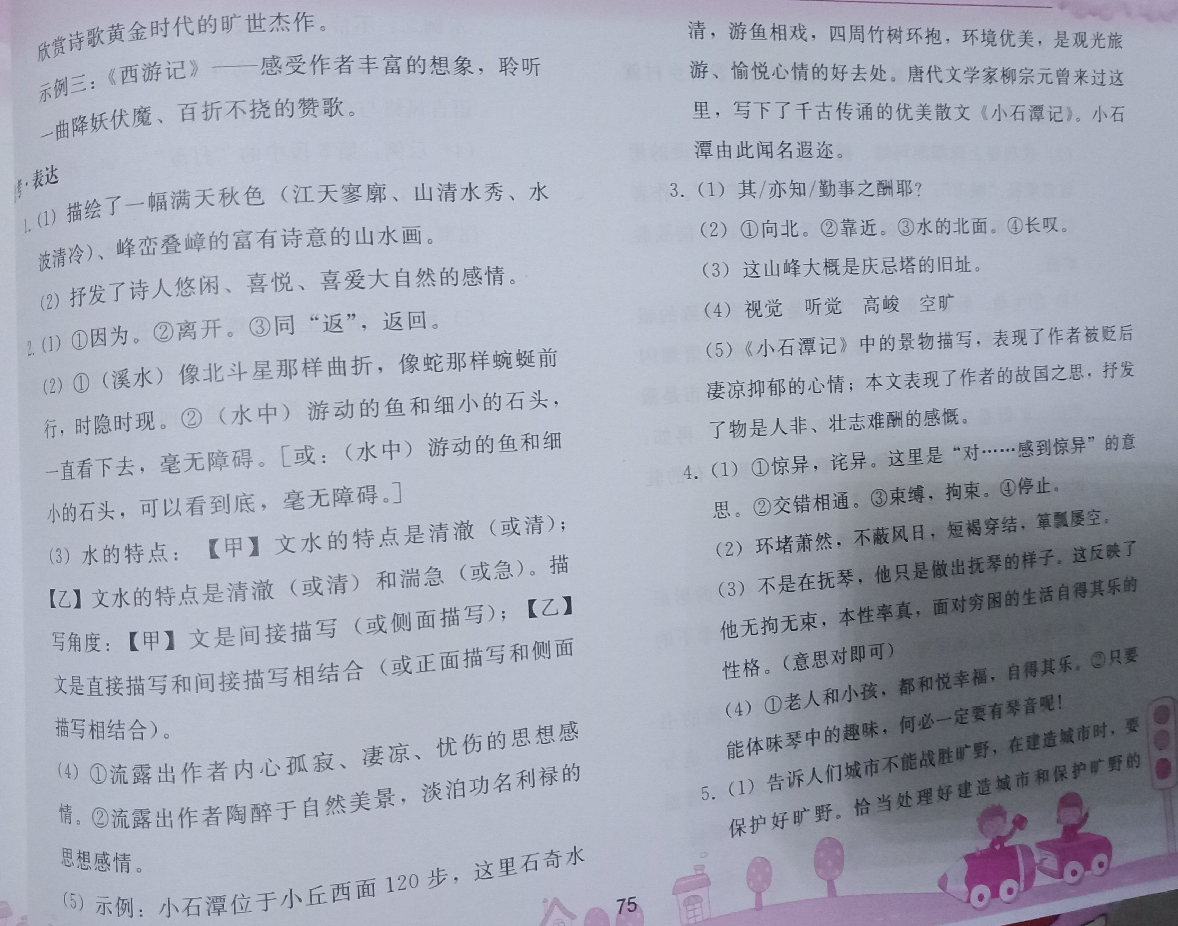 欣赏诗歌黄金时代的旷世杰作。
示例三：《西游记》——感受作者丰富的想象，聆听
一曲降妖伏魔、百折不挠的赞歌。
·表达
1.(1) 描绘了一幅满天秋色（江天寥廓、山清水秀、水
波清冷）、峰峦叠嶂的富有诗意的山水画。
(2) 抒发了诗人悠闲、喜悦、喜爱大自然的感情。
2.(1) ①因为。②离开。③同“返”，返回。
(2) ①（溪水）像北斗星那样曲折，像蛇那样蜿蜒前
行，时隐时现。②（水中）游动的鱼和细小的石头，
一直看下去，毫无障碍。[或：（水中）游动的鱼和细
小的石头，可以看到底，毫无障碍。]
(3) 水的特点：【甲】文水的特点是清澈（或清）；
【乙】文水的特点是清澈（或清）和湍急（或急）。描
写角度：【甲】文是间接描写（或侧面描写）；【乙】
文是直接描写和间接描写相结合（或正面描写和侧面
描写相结合）。
(4) ①流露出作者内心孤寂、凄凉、忧伤的思想感
情。②流露出作者陶醉于自然美景，淡泊功名利禄的
思想感情。
(5) 示例：小石潭位于小丘西面 120 步，这里石奇水
清，游鱼相戏，四周竹树环抱，环境优美，是观光旅
游、愉悦心情的好去处。唐代文学家柳宗元曾来过这
里，写下了千古传诵的优美散文《小石潭记》。小石
潭由此闻名遐迩。
3.（1）其/亦知/勤事之酬耶？
（2）①向北。②靠近。③水的北面。④长叹。
（3）这山峰大概是庆忌塔的旧址。
（4）视觉 听觉 高峻 空旷
（5）《小石潭记》中的景物描写，表现了作者被贬后
凄凉抑郁的心情；本文表现了作者的故国之思，抒发
了物是人非、壮志难酬的感慨。
4.（1）①惊异，诧异。这里是“对……感到惊异”的意
思。②交错相通。③束缚，拘束。④停止。
（2）环堵萧然，不蔽风日，短褐穿结，箪瓢屡空。
（3）不是在抚琴，他只是做出抚琴的样子。这反映了
他无拘无束，本性率真，面对穷困的生活自得其乐的
性格。（意思对即可）
（4）①老人和小孩，都和悦幸福，自得其乐。②只要
能体味琴中的趣味，何必一定要有琴音呢！
5.（1）告诉人们城市不能战胜旷野，在建造城市时，要
保护好旷野。恰当处理好建造城市和保护旷野的
75